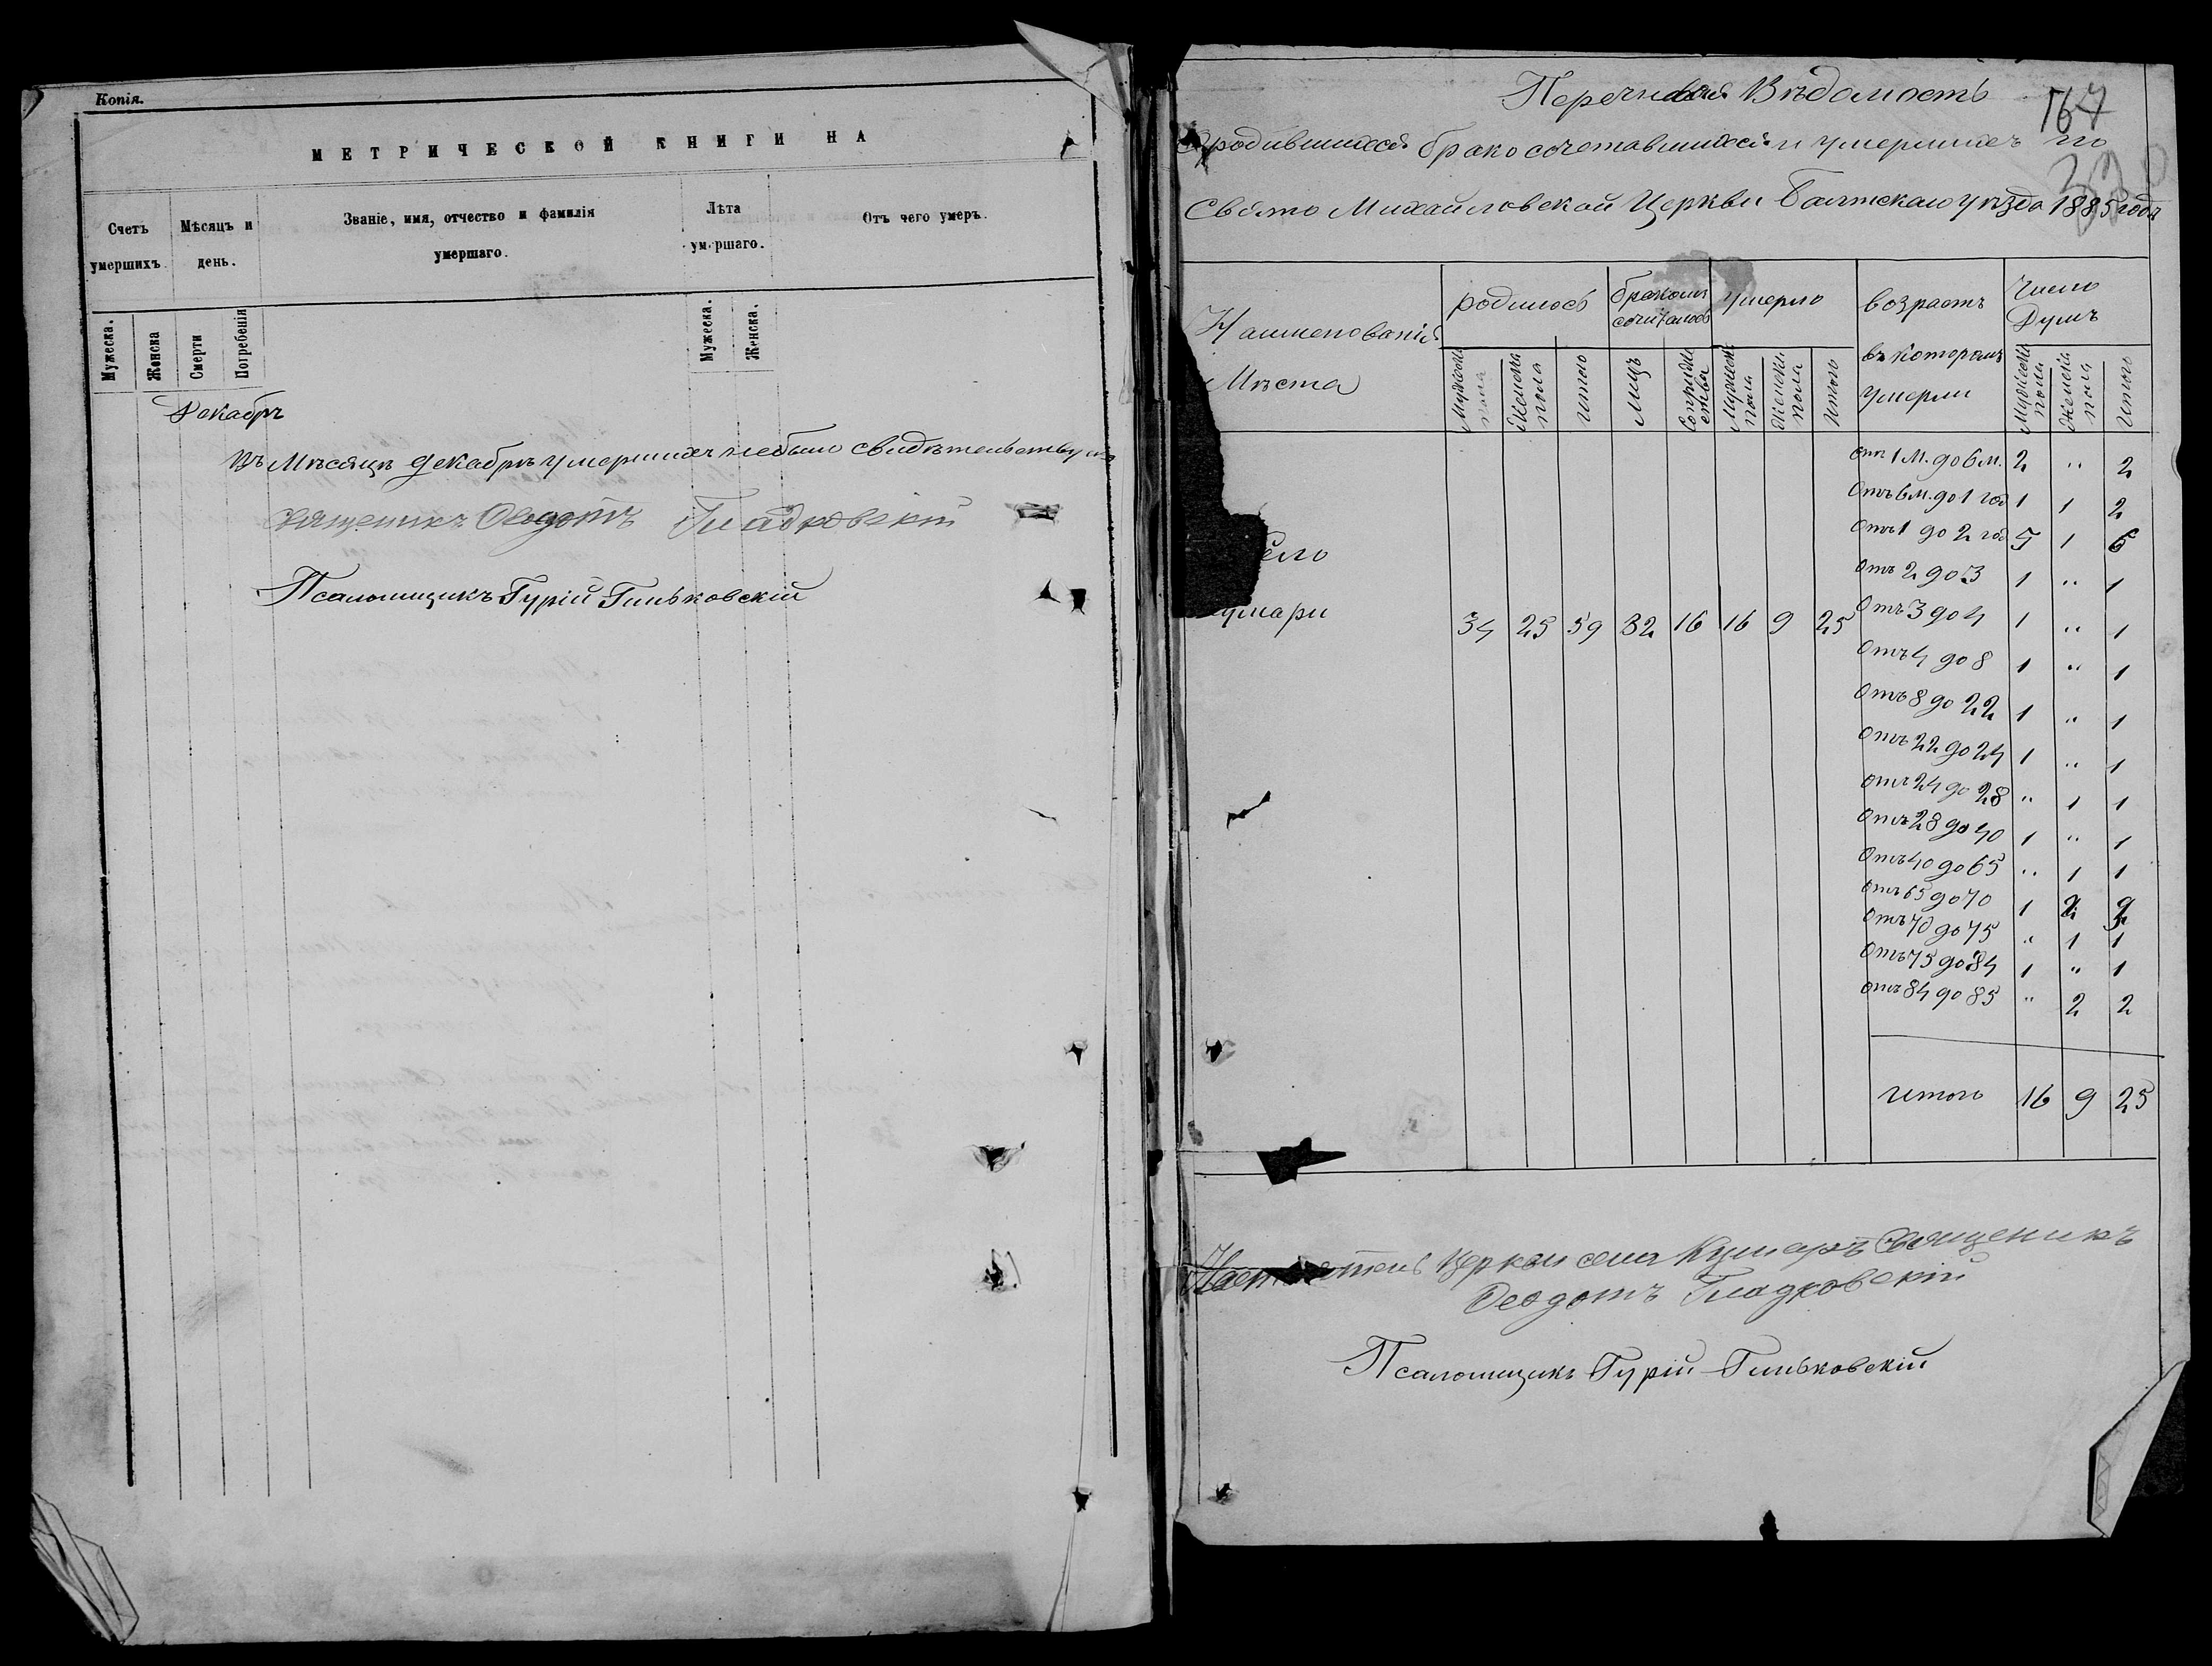 Копія.
МЕТРИЧЕСКОЙ КНИГИ НА
Счетъ умершихъ.
Мѣсяцъ и день.
Званіе, имя, отчество и фамилія умершаго.
Лѣта умершаго.
Отъ чего умеръ.
Мужеска.
Женска
Смерти
Погребенія
Мужеска.
Женска.
Декабрь
Въ Мѣсяцѣ декабрѣ умершихъ небыло свидѣтельствуютъ
священикъ Ѳеодотъ Гладковскій
Псаломщикъ Гурій Гиньковскій
Перечневая Вѣдомость
167
О родившихся бракосочетавшихся и умершихъ по
Свято Михайловской Церкви Балтскаго уѣзда 1885 года
Наименованія Мѣста
родилось
бракомъ сочиталось
умерло
возрастъ въ которомъ умерли
Число Душъ
Мужеска пола
Женска пола
Итого
Лицъ
Супружества
Мужеска пола
Женска пола
Итого
Мужеска пола
Женска пола
Итого
Отъ 1 м. до 6 м. 2 " 2
Отъ 6 м. до 1 год 1 1 2
Отъ 1 до 2 год. 5 1 6
Отъ 2 до 3 1 " 1
Село
Кумари 34 25 59 32 16 16 9 25
Отъ 3 до 4 1 " 1
Отъ 4 до 8 1 " 1
Отъ 8 до 22 1 " 1
Отъ 22 до 24 1 " 1
Отъ 24 до 28 " 1 1
Отъ 28 до 40 1 " 1
Отъ 40 до 65 " 1 1
Отъ 65 до 70 1 2 3
Отъ 70 до 75 " 1 1
Отъ 75 до 84 1 " 1
Отъ 84 до 85 " 2 2
Итого 16 9 25
Настоятель Церкви села Кумаръ Священикъ
Ѳеодотъ Гладковскій
Псаломщикъ Гурій Гиньковскій